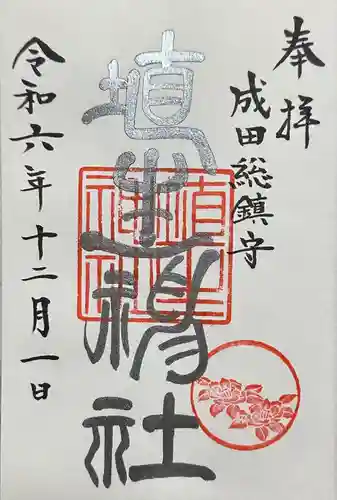 奉拝
成田総鎮守
埴生神社
埴生神社
令和六年十二月一日